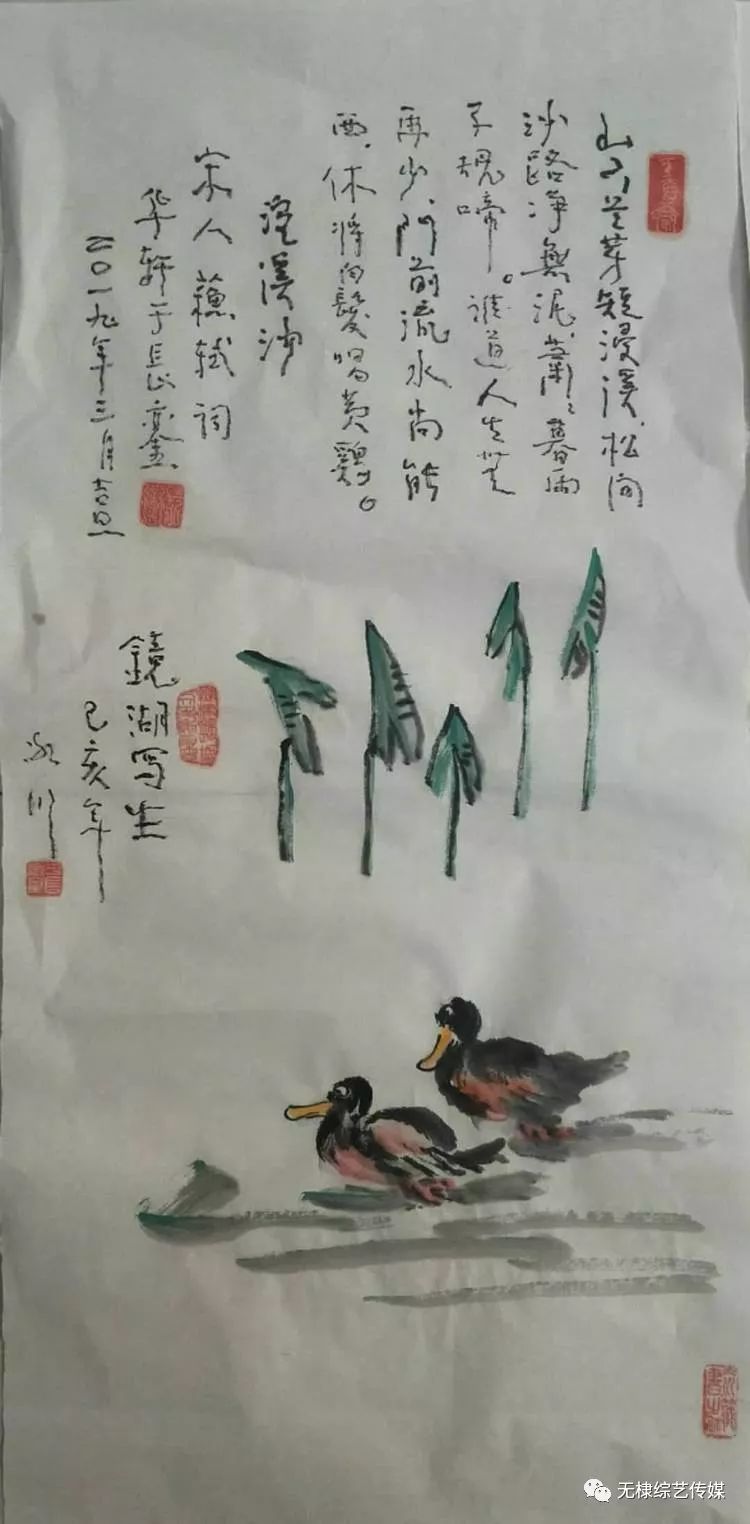 山下兰芽短浸溪、松间
沙路净無泥、蕭々暮雨
子規啼。谁道人生無
再少、门前流水尚能
西、休将白髮唱黄鷄。
浣溪沙
宋人蘇轼词
华轩于長
二〇一九年三月吉旦
鏡湖写生
己亥年
无棣综艺传媒